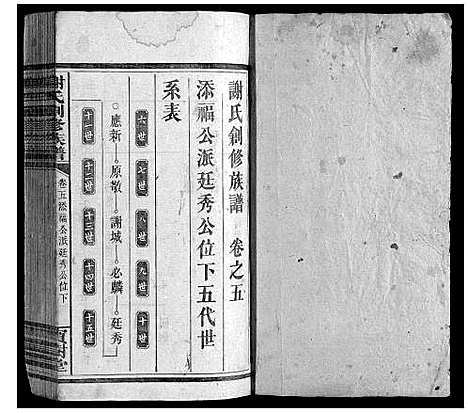 謝氏創修族譜 卷之五
添福公派廷秀公位下五代世
系表
六世 七世 八世 九世 十世
應新 原敬 謝城 必麟 廷秀
十一世 十二世 十三世 十四世 十五世
謝氏創修族譜 卷五添福公派廷秀公位下 寶樹堂